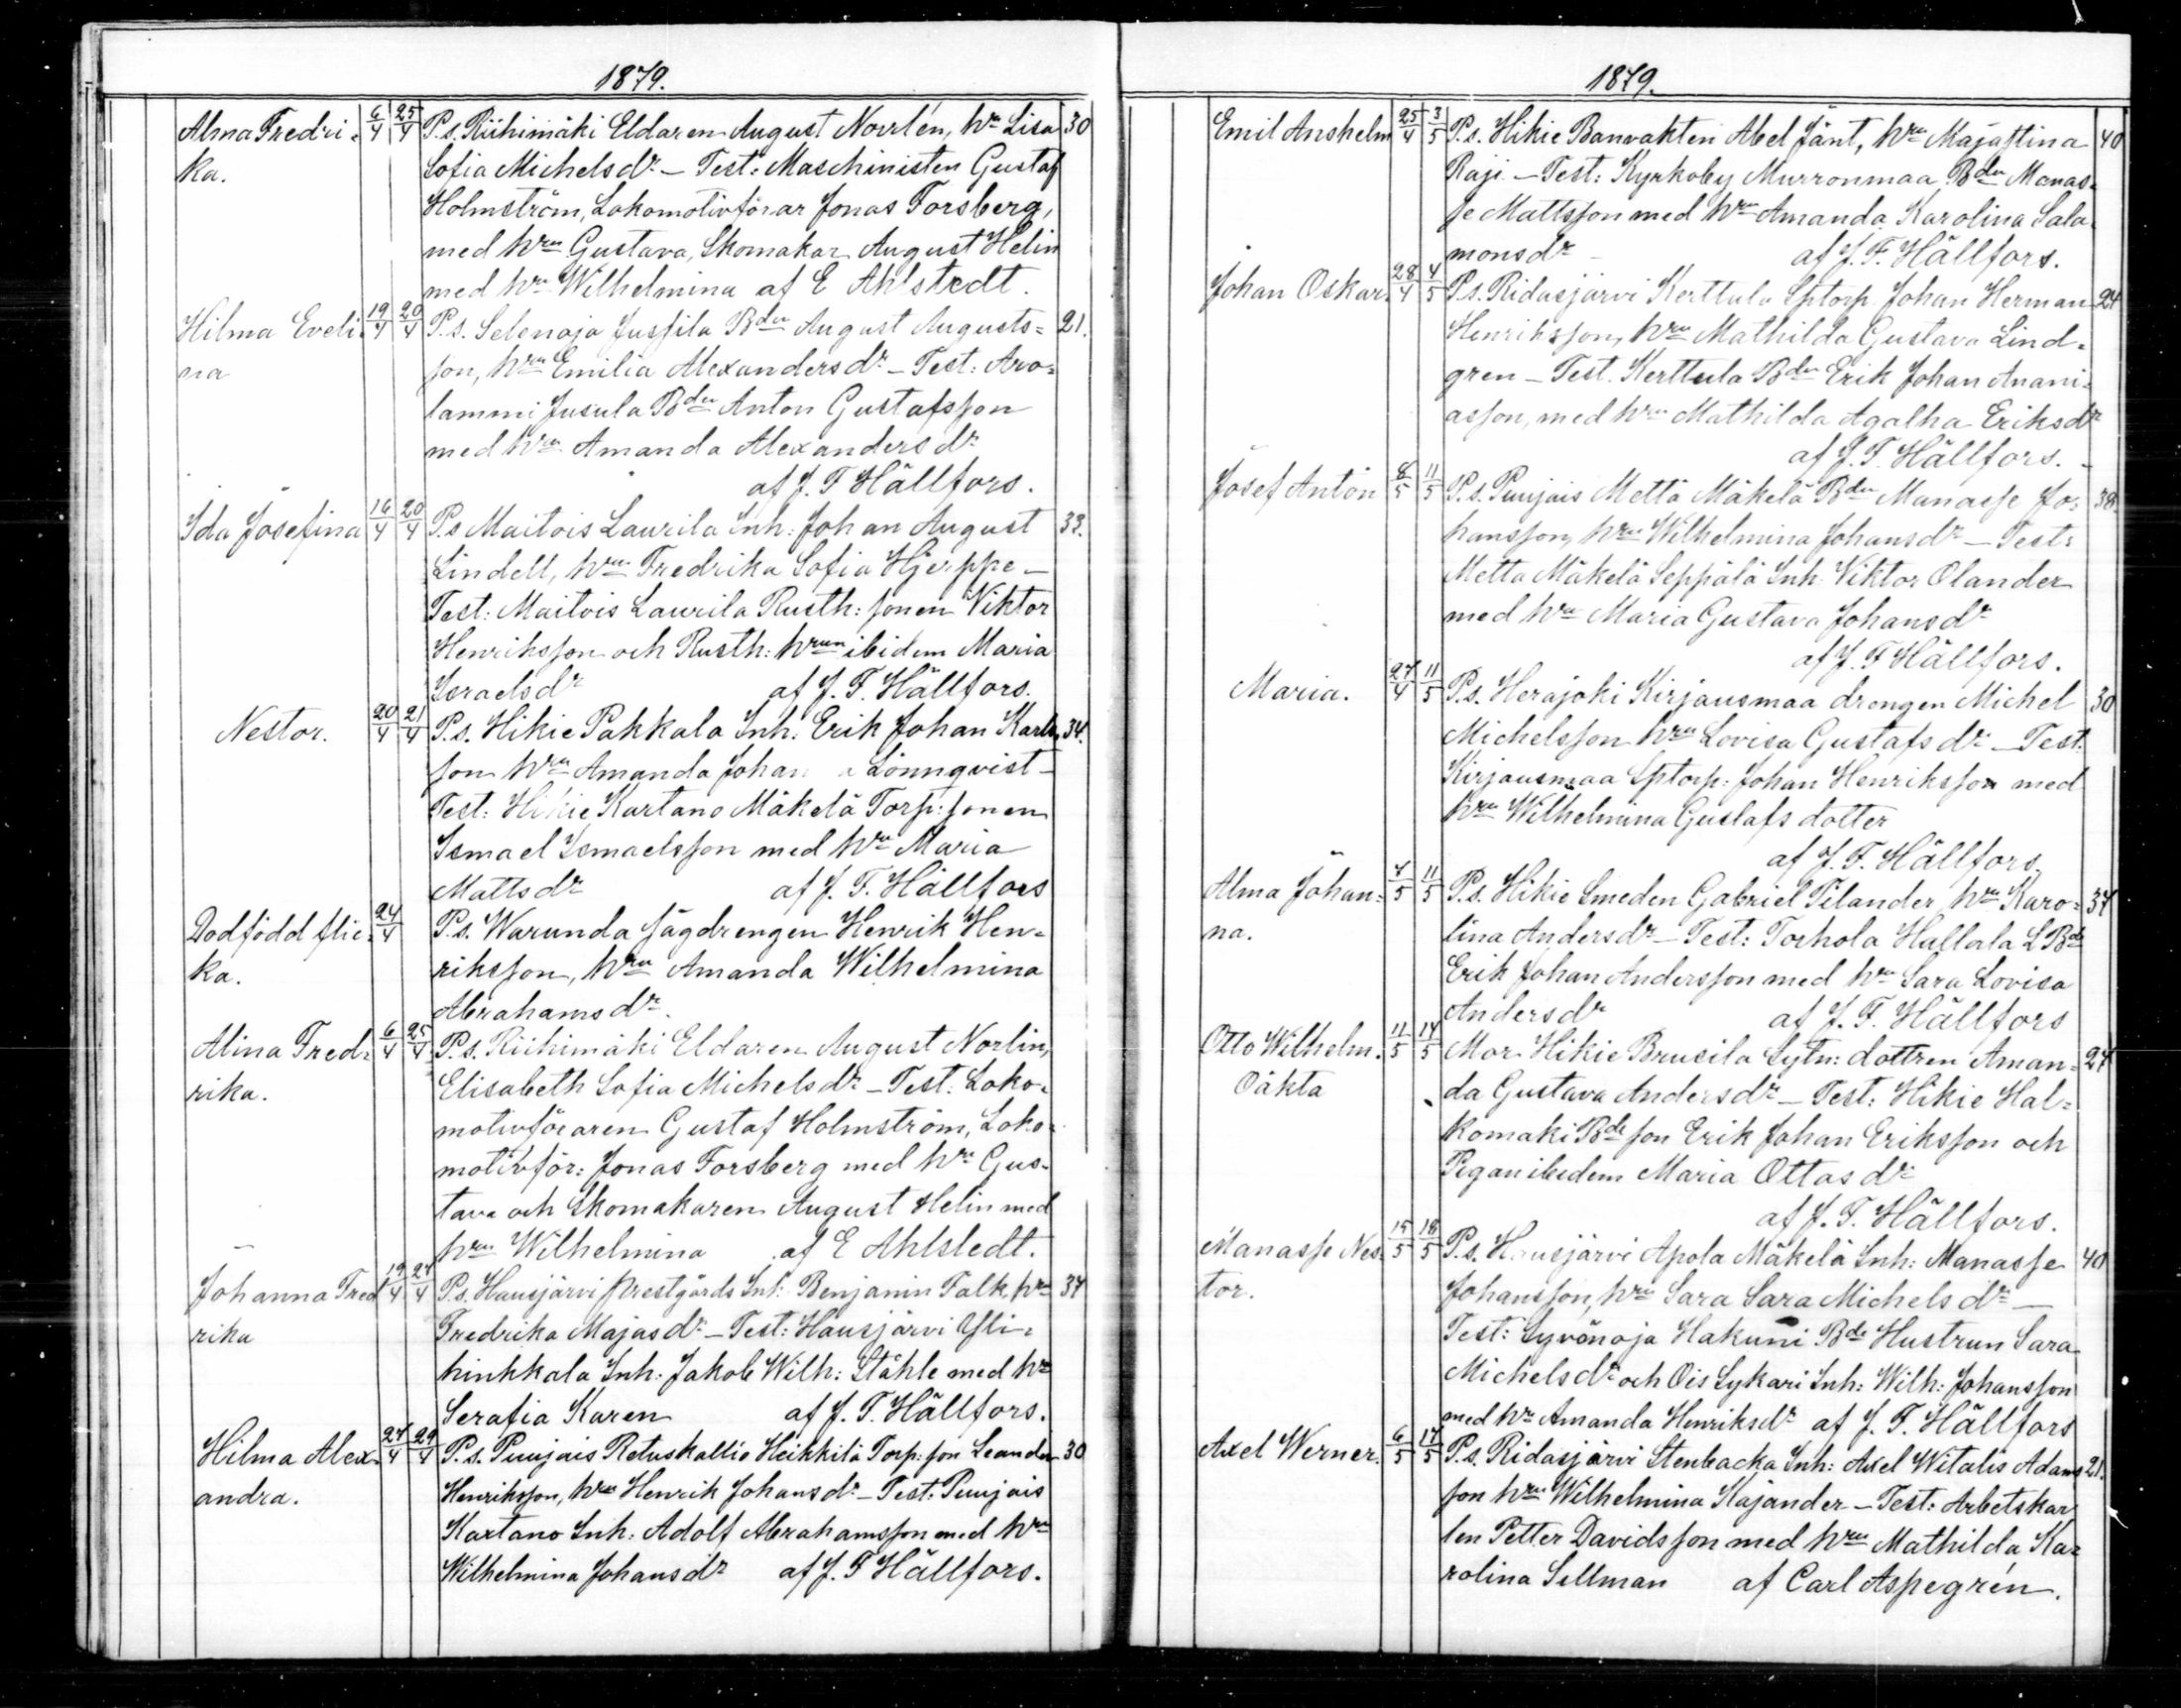 1879.
Alma Fredri- 6/4 25/4 P.s. Riihimäki Eldaren August Norrlén, hru Lisa 30
ka. Sofia Michelsdr – Test: Maschinisten Gustaf
Holmström, Lokomotivförar Jonas Forsberg,
med hru Gustava, Skomakar August Helin
med hru Wilhelmina af E Ahlstedt.
Hilma Eveli- 19/4 20/4 P.s. Selenoja Jussila Bdn August Augusts= 21.
na son, hru Emilia Alexandersdr – Test: Aro=
lammi Jusula Bdn Anton Gustafsson
med hru Amanda Alexandersdr
af J. F Hällfors.
Ida Josefina 16/4 20/4 P.s Maitois Laurila Inh: Johan August 33.
Lindell, hru Fredrika Sofia Hjerppe –
Test: Maitois Laurila Rusth: sonen Viktor
Henriksson och Rusth: hrun ibidem Maria
Israelsdr af J. F. Hällfors.
Nestor. 20/4 21/4 P.s. Hikie Pakkala Inh: Erik Johan Karls- 34.
son hru Amanda Johan a Lönnqvist –
Test: Hikie Kartano Mäkelä Torp: sonen
Ismael Ismaelsson med hru Maria
Mattsdr af J. F. Hällfors
Dödfödd flic- 24/4 P.s. Warunda sågdrengen Henrik Hen=
ka. riksson, hru Amanda Wilhelmina
Abrahamsdr.
Alina Fred- 6/4 25/4 P.s. Riihimäki Eldaren August Norlin,
rika. Elisabeth Sofia Michelsdr – Test: Loko=
motivföraren Gustaf Holmström, Loko=
motivför: Jonas Forsberg med hru Gus-
tava och Skomakaren August Helin med
hru Wilhelmina af E Ahlstedt.
Johanna Fred 19/4 27/4 P.s. Hausjärvi prestgårds Inh: Benjamin Falk, hru 37
rika Fredrika Majasdr – Test: Hausjärvi Yli-
hinkkala Inh: Jakob Wilh: Ståhle med hru
Serafia Karen af J. F. Hällfors.
Hilma Alex- 27/4 29/4 P.s. Puujais Retuskallio Heikkilä Torp: son Leander 30
andra. Henriksson, hru Henrik Johansdr – Test: Puujais
Kartano Inh: Adolf Abrahamsson med hru
Wilhelmina Johansdr af J. F Hällfors.
1879.
Emil Anshelm 25/4 3/5 P.s. Hikie Banvakten Abel Jänt, hru Majastina 40
Raji – Test: Kyrkoby Murronmaa Bdn Manas=
se Mattsson med hru Amanda Karolina Salo-
monsdr – af J. F. Hällfors.
Johan Oskar. 28/4 4/5 P.s. Ridasjärvi Kerttula Sptorp Johan Herman 24
Henriksson, hru Mathilda Gustava Lind=
gren – Test. Kerttula Bdn Erik Johan Anani-
asson, med hru Mathilda Agatha Eriksdr
af J. F. Hällfors.
Josef Anton 8/5 11/5 P.s. Puujais Mettä Mäkelä Bdn Manasse Jo= 38
hansson, hru Wilhelmina Johansdr – Test:
Metta Mäkelä Seppälä Inh. Viktor Olander
med hru Maria Gustava Johansdr
af J. F Hällfors.
Maria. 27/4 11/5 P.s. Herajoki Kirjausmaa drengen Michel 30
Michelsson hru Lovisa Gustafsdr – Test.
Kirjausmaa Sptorp: Johan Henriksson med
hru Wilhelmina Gustafs dotter
af J. F. Hällfors.
Alma Johan= 4/5 11/5 P.s. Hikie Smeden Gabriel Tilander, hru Karo= 37
na. lina Andersdr – Test: Torhola Hullala L Bdn
Erik Johan Andersson med hru Sara Lovisa
Andersdr af J. F. Hällfors
Otto Wilhelm. 11/5 14/5 Mor Hikie Brusila Sytn: dottren Aman= 27
Oäkta da Gustava Andersdr – Test: Hikie Hal=
komaki Bde son Erik Johan Eriksson och
Pigan ibidem Maria Ottasdr
af J. F. Hällfors.
Manasse Nes- 15/5 18/5 P.s. Hausjärvi Apola Mäkelä Inh: Manasse 40
tor. Johansson, hru Sara Sara Michelsdr –
Test: Syvänoja Hakuni Bde Hustrun Sara
Michelsdr och Ois Sykari Inh: Wilh: Johansson
med hru Amanda Henriksdr af J. F. Hällfors
Axel Werner. 6/5 17/5 P.s. Ridasjärvi Stenbacka Inh: Axel Witalis Adams 21.
son hru Wilhelmina Kajander – Test: Arbetskar
len Petter Davidsson med hru Mathilda Ka=
rolina Sellman af Carl Aspegrén.